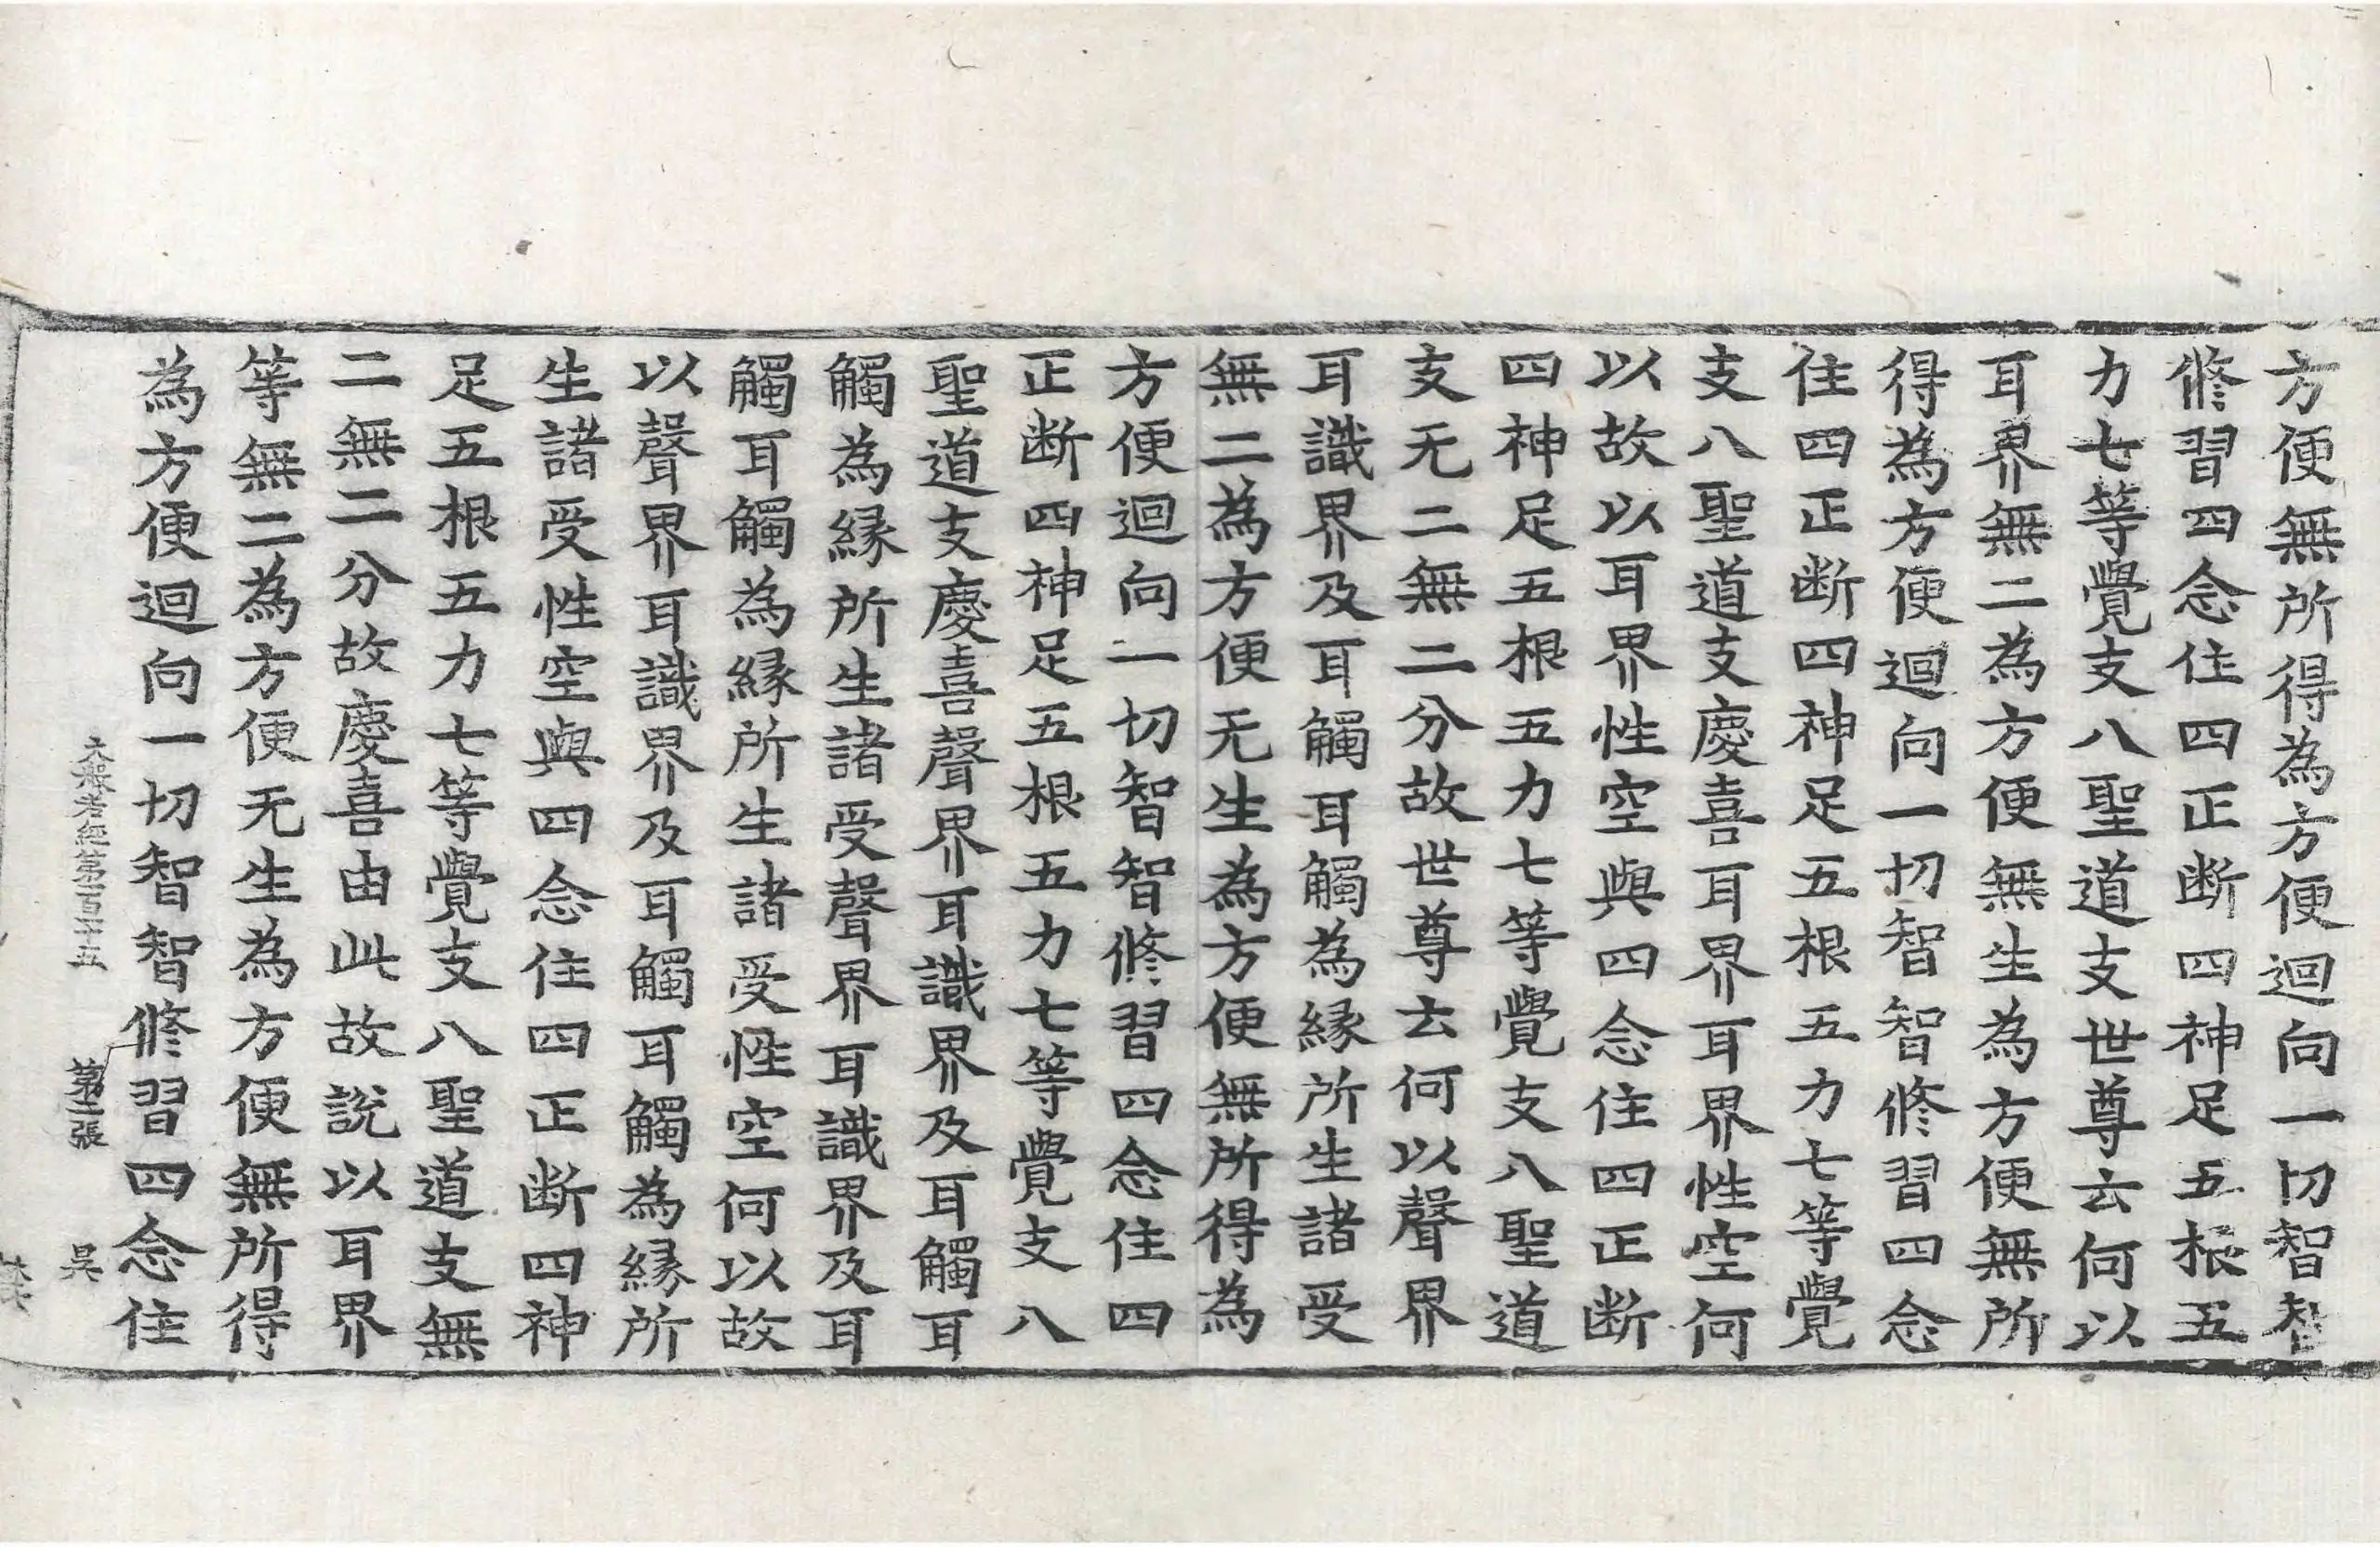 方便無所得為方便迴向一切智智
修習四念住四正断四神足五根五
力七等覺支八聖道支世尊云何以
耳界無二為方便無生為方便無所
得為方便迴向一切智智修習四念
住四正断四神足五根五力七等覺
支八聖道支慶喜耳界耳界性空何
以故以耳界性空與四念住四正断
四神足五根五力七等覺支八聖道
支无二無二分故世尊云何以聲界
耳識界及耳觸耳觸為縁所生諸受
無二為方便无生為方便無所得為
方便迴向一切智智修習四念住四
正断四神足五根五力七等覺支八
聖道支慶喜聲界耳識界及耳觸耳
觸為縁所生諸受聲界耳識界及耳
觸耳觸為縁所生諸受性空何以故
以聲界耳識界及耳觸耳觸為縁所
生諸受性空與四念住四正断四神
足五根五力七等覺支八聖道支無
二無二分故慶喜由此故説以耳界
等無二為方便无生為方便無所得
為方便迴向一切智智修習四念住
大般若經第一百二十五 第二張 吳